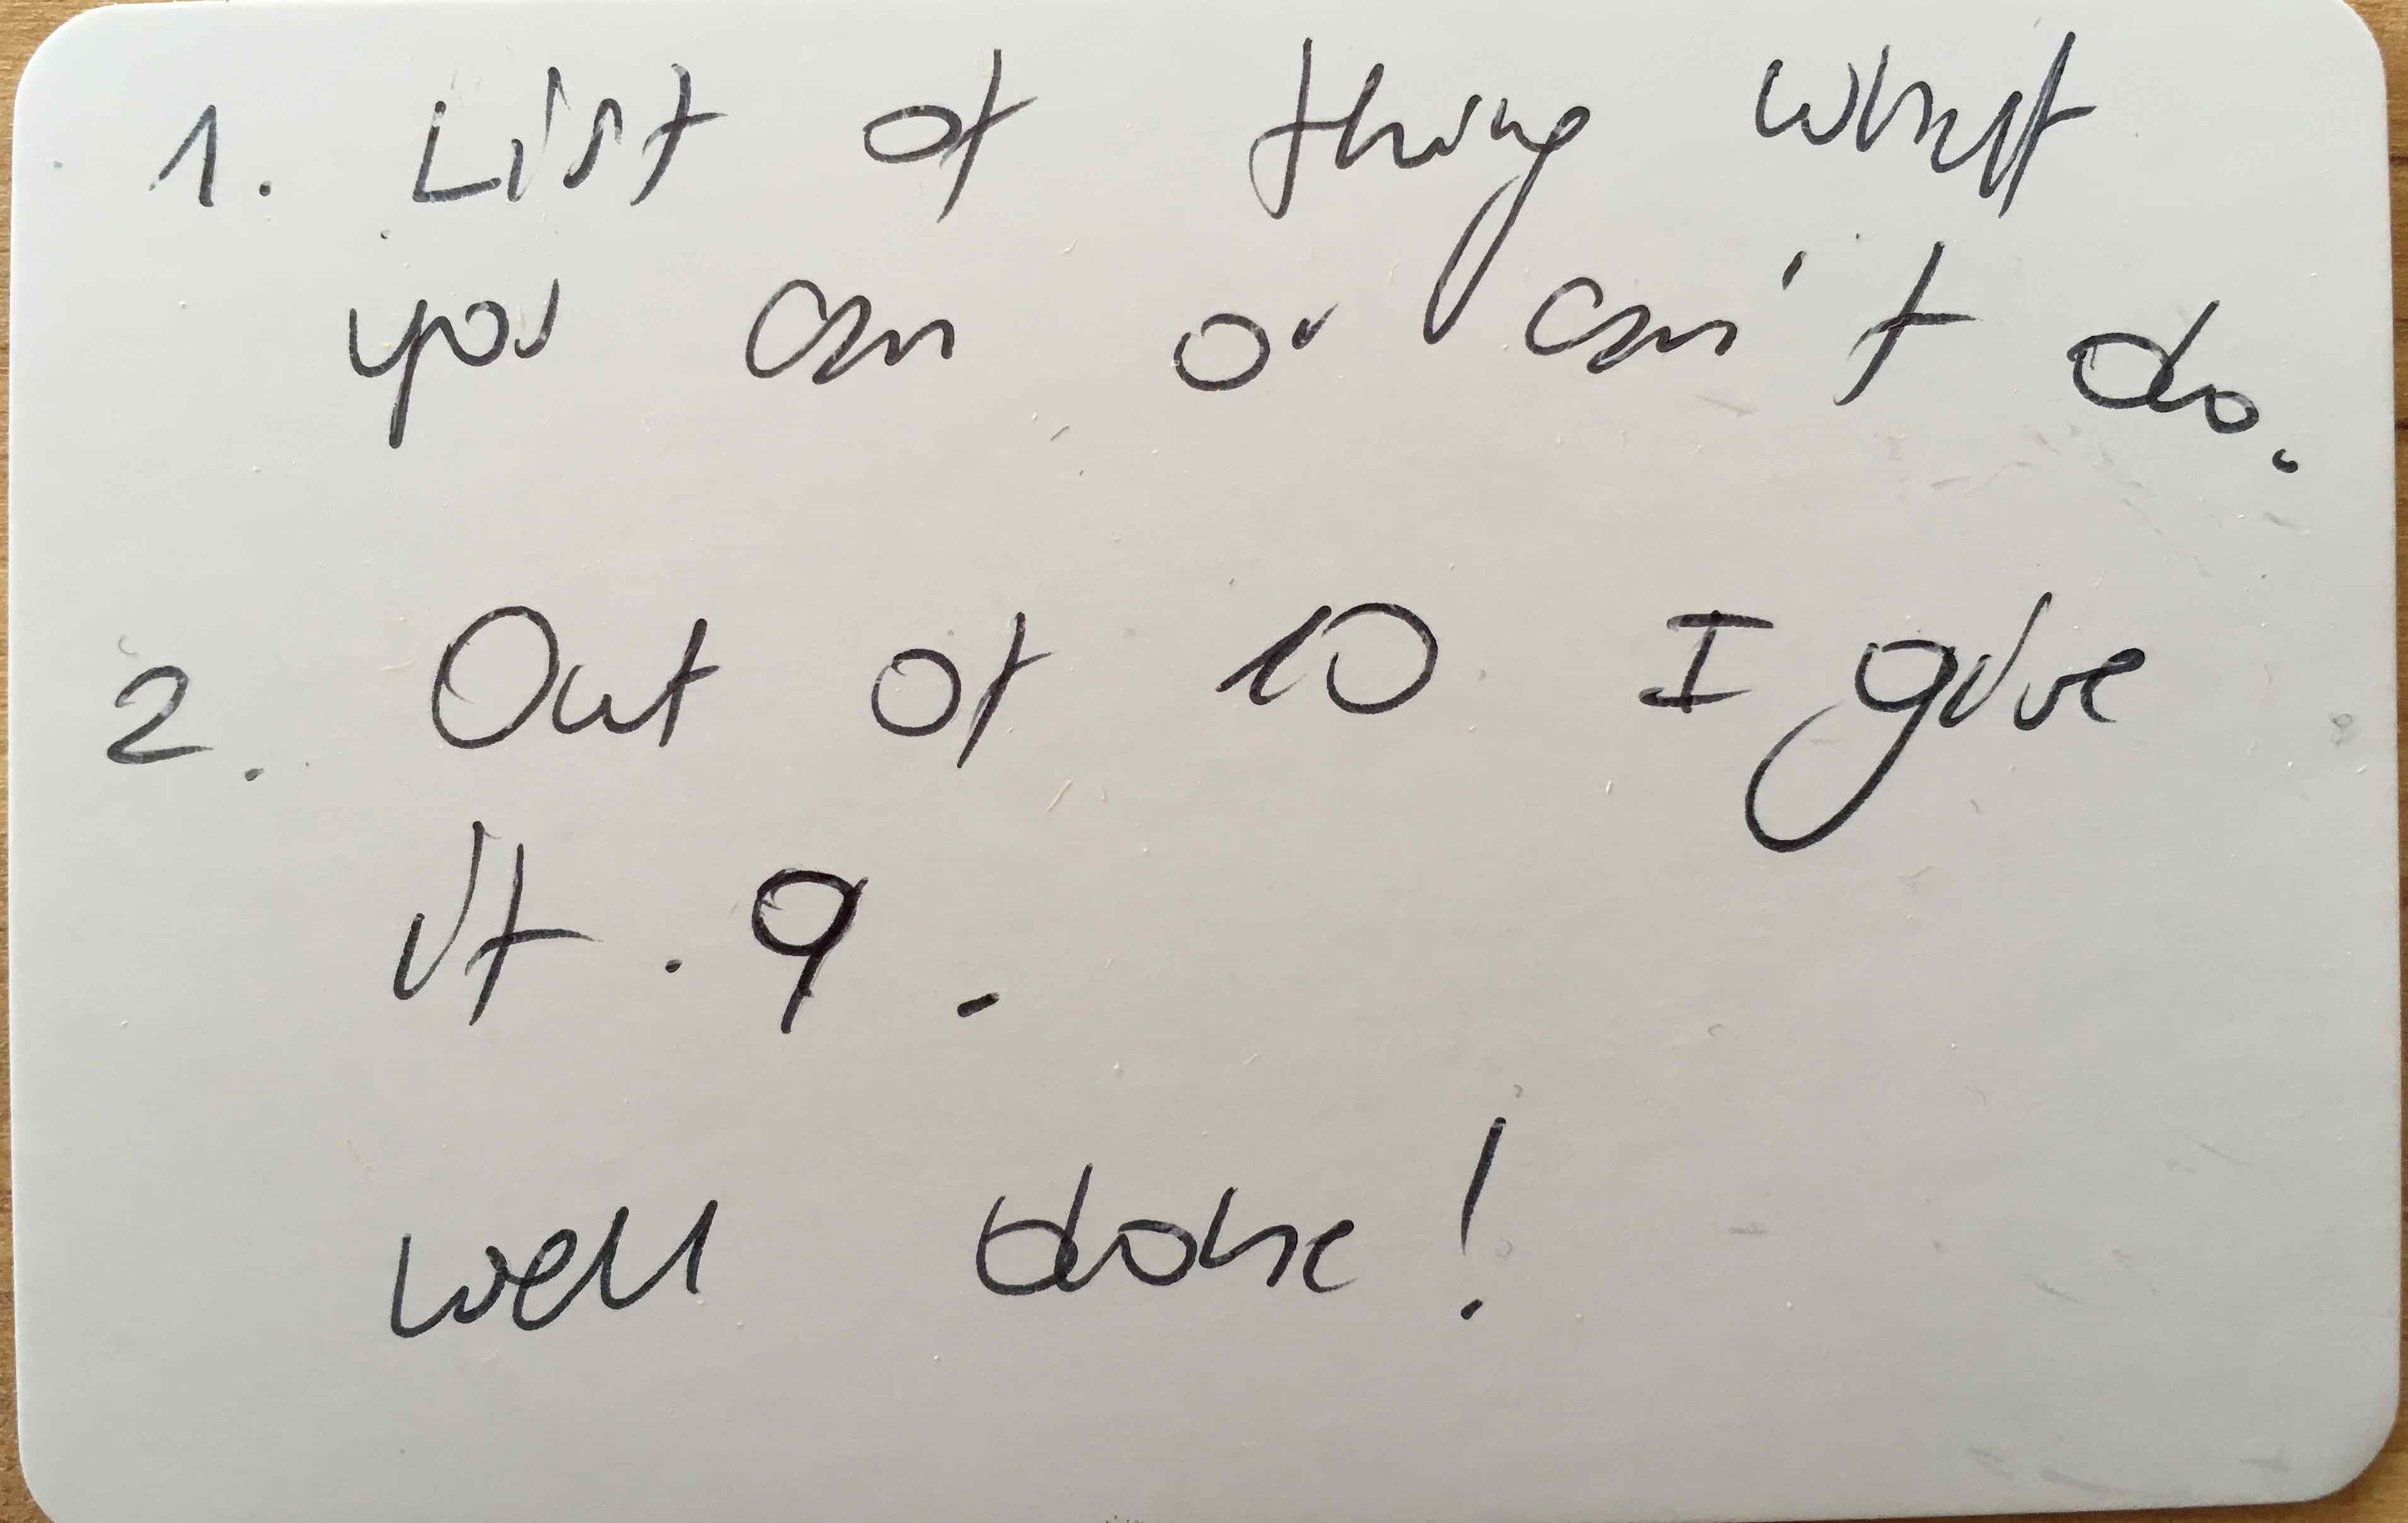 1. List of thing what
you can or can't do.
2. Out of 10 I give
it . 9 .
well done!